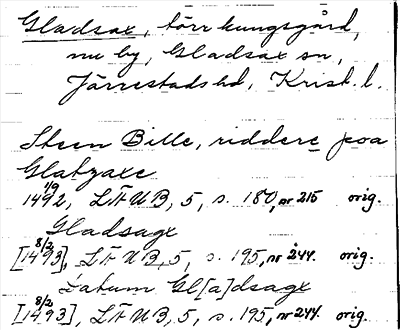 Gladsax, förr kungsgård,
nu by, Gladsax sn,
Järrestads hd, Krist. l.
Steen Bille, riddere poa
Glatzaxe
1/9 1492, LÄUB, 5, s. 180, nr 215 orig.
Gladsagx
[8/2 1493], LÄUB, 5, s. 195, nr 244. orig.
Datum Gl[a]dsagx
[8/2 1493], LÄUB, 5, s. 195, nr 244. orig.